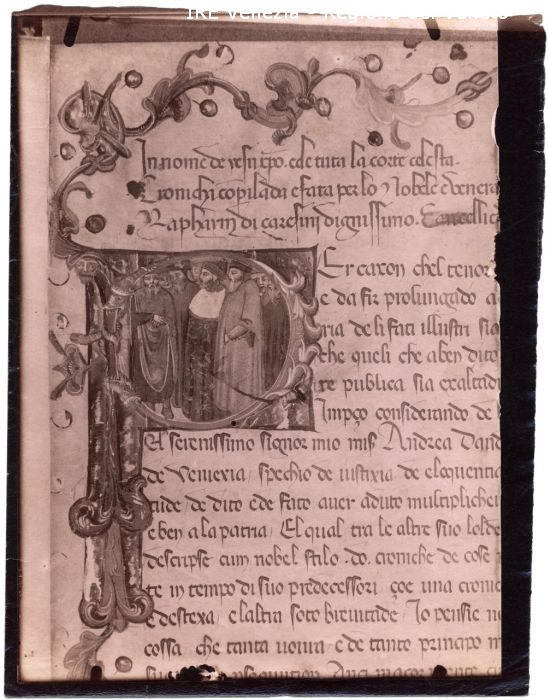 IRE Venezia - Regione del Veneto
In nome de yesu xpo. e de tuta la corte celesta.
Cronicha copilada e fata per lo Nobele e Venera
Raphain di caresini dignissimo. Cancellie
Per caxon chel tenor
e da fir prolungado a
ria de li fati illustri sia
che queli che aben dito
re publica sia exaltad
Impço considerando de
el serenissimo signor mio mis Andrea Dand
de Veniexia, spechio de iustixia de eloquentia
tude de dito e de fato auer aduto multipliche
e ben a la patria, El qual tra le altre suo lolde
descripse cum nobel stilo .do. croniche de cose
te in tempo di suo predecessori, çoe una cronic
e destexa, e laltra soto breuitade, Io pensie no
cossa che tanta uoiua, e de tanto principo m